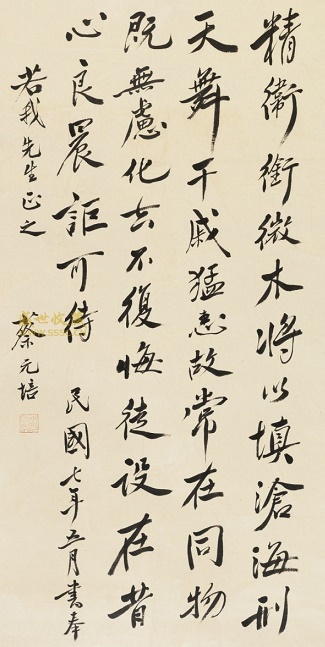 精衛銜微木將以填滄海刑
天舞干戚猛志故常在同物
既無慮化去不復悔徒設在昔
心良晨詎可待 民國七年五月書奉
若我先生正之
蔡元培